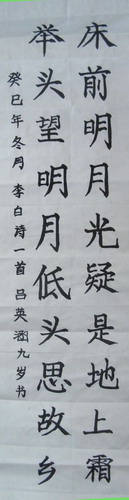 床前明月光疑是地上霜
举头望明月低头思故乡
癸巳年冬月 李白诗一首 吕英涵九岁书